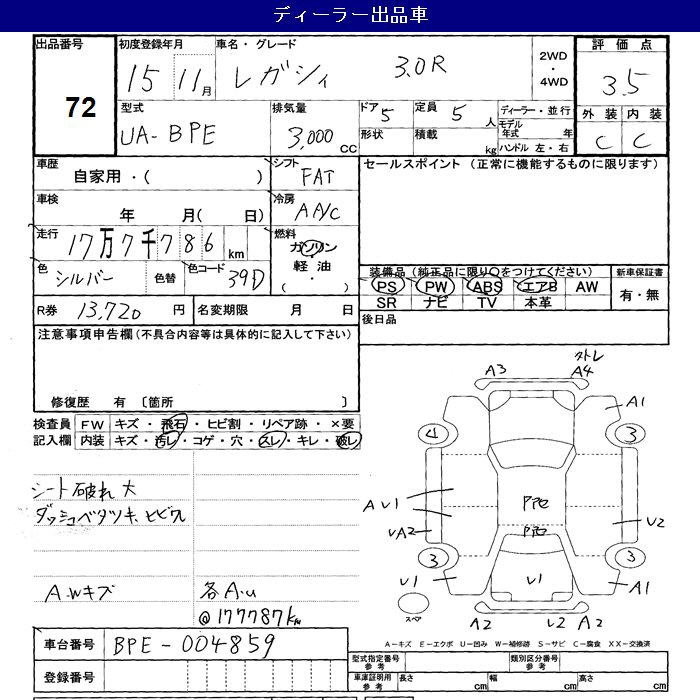 ディーラー出品車
出品番号 72
初度登録年月 15 11月
車名・グレード レガシィ 3.0R
2WD・4WD
評価点 3.5
型式 UA-BPE
排気量 3,000 CC
ドア 5 定員 5 人
形状 積載 kg
ディーラー・並行
モデル年式 年
ハンドル 左・右
外装 内装
C C
車歴 自家用・( )
シフト FAT
セールスポイント (正常に機能するものに限ります)
車検 年 月( 日)
冷房 AA/C
走行 17万7千786 km
燃料 ガソリン・軽油 ( ・ )
色 シルバー 色替 色コード 39D
装備品 (純正品に限り○をつけてください) 新車保証書
PS PW ABS エアB AW 有・無
SR ナビ TV 本革
R券 13,720 円 名変期限 月 日
後日品
注意事項申告欄(不具合内容等は具体的に記入して下さい)
修復歴 有 〔箇所 〕
検査員記入欄 FW キズ・飛石・ヒビ割・リペア跡・×要
内装 キズ・汚レ・コゲ・穴・スレ・キレ・破レ
A3 A4
A1
4 3
シート破れ大
ダッシュベタツキ、ヒビワレ
A U1
UA2
PPC
PPC
U2
3 3
U1 U1 A1
A.Wキズ 各A.U
@177787km
スペア
A2 U2 A2
A-キズ E-エクボ U-凹み W-補修跡 S-サビ C-腐食 XX-交換済
車台番号 BPE-004859
型式指定番号 参考 類別区分番号 参考
登録番号
車庫証明用 参考 長さ cm 幅 cm 高さ cm